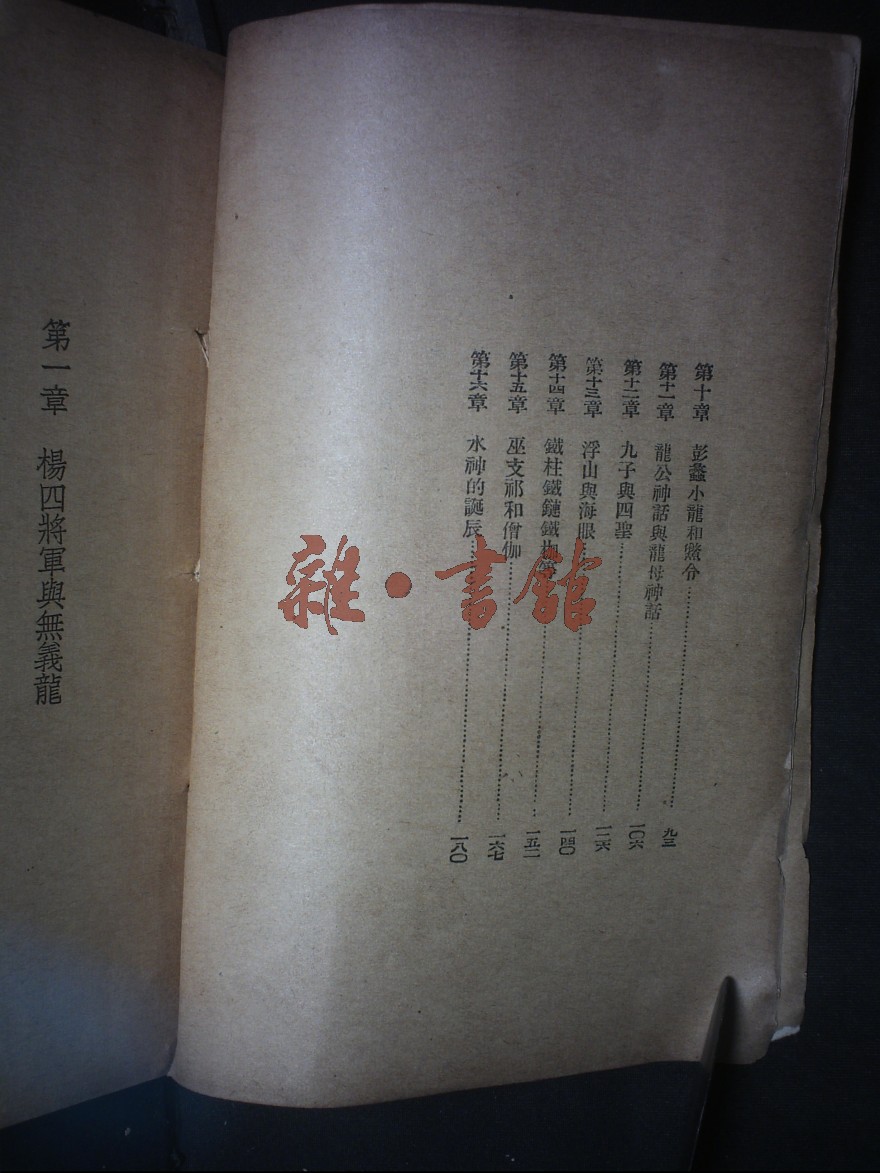 第十章 彭蠡小龍和黿令……九三
第十一章 龍公神話與龍母神話……一〇六
第十二章 九子與四聖……一二六
第十三章 浮山與海眼……一四〇
第十四章 鐵柱鐵鏈鐵……一五二
第十五章 巫支祁和僧伽……一六七
第十六章 水神的誕辰……一八〇
第一章 楊四將軍與無義龍
雜·書館